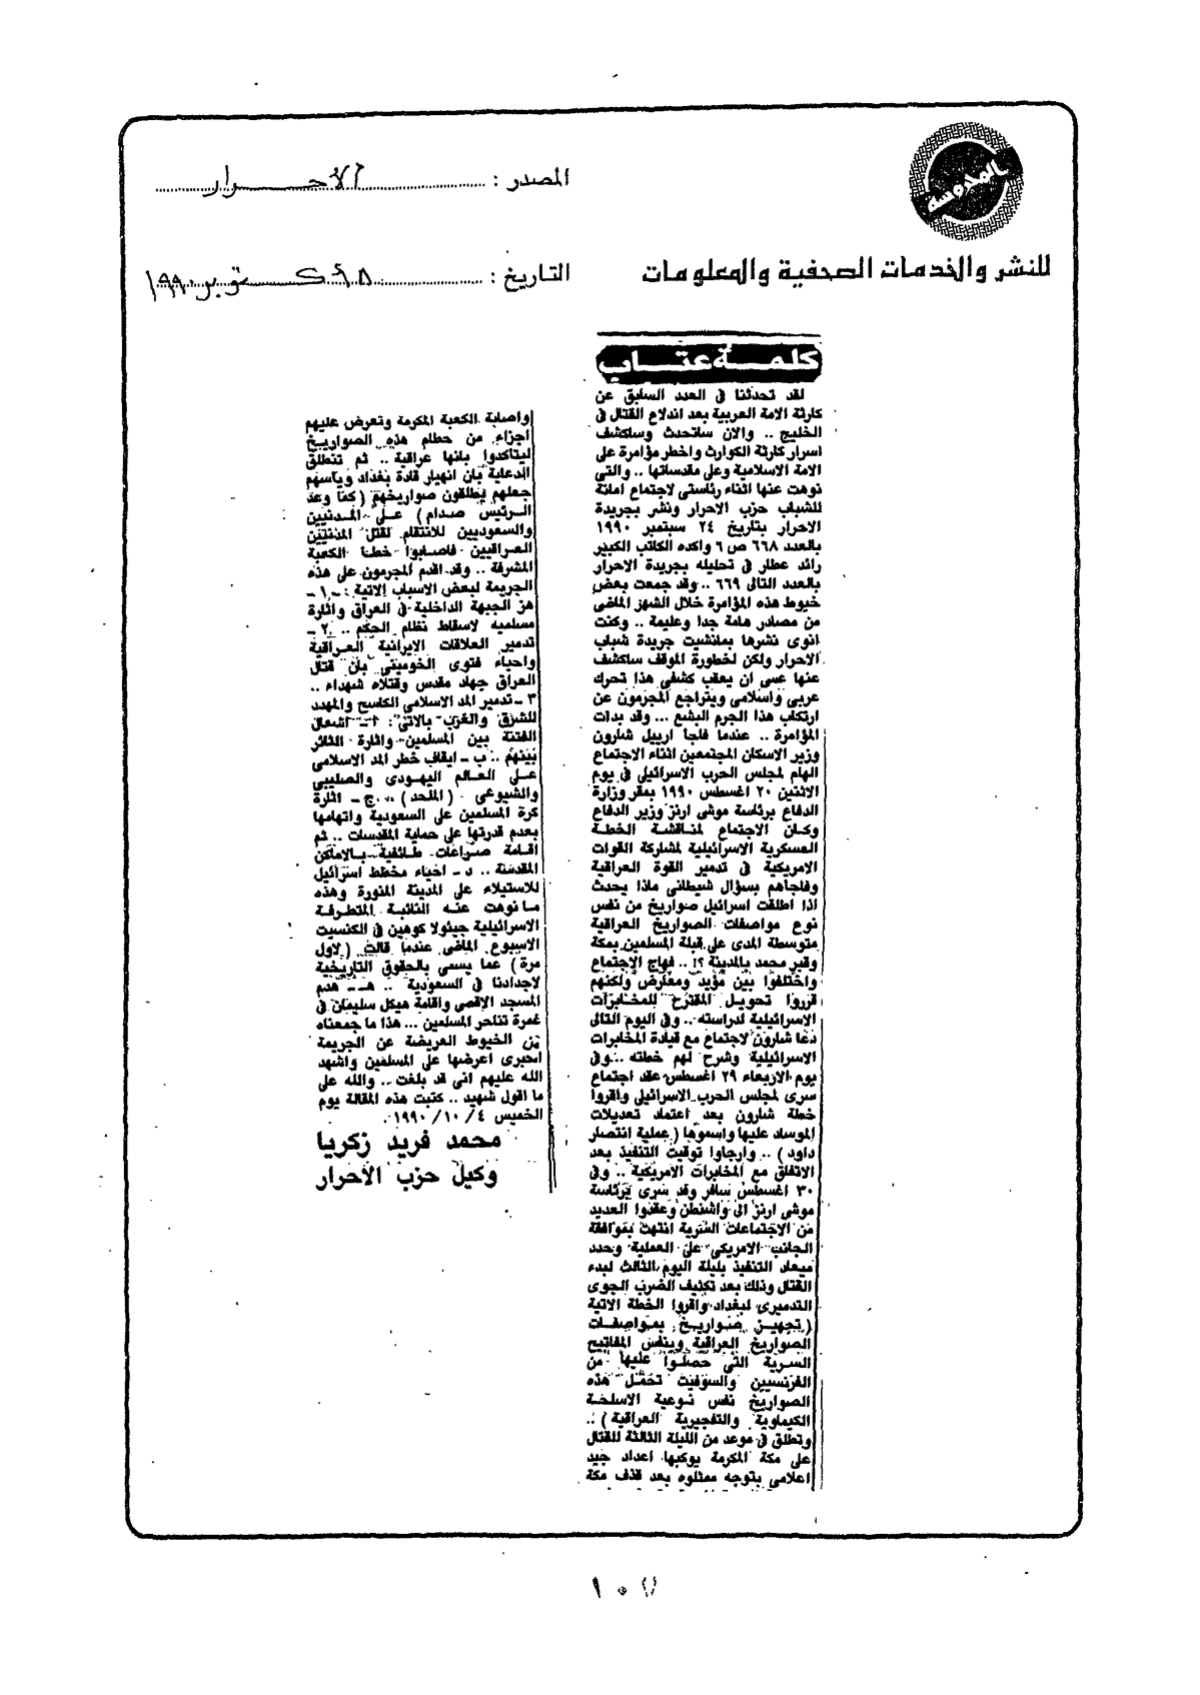 المصدر : الأحرار
للنشر والخدمات الصحفية والمعلومات
التاريخ : أكتوبر ١٩٩٠
كلمة عتاب
لقد تحدثنا فى العدد السابق عن
كارثة الامة العربية بعد اندلاع القتال فى
الخليج .. والان ساتحدث وساكشف
اسرار كارثة الكوارث واخطر مؤامرة على
الامة الاسلامية وعلى مقدساتها .. والتى
نوهت عنها اثناء رئاستى لاجتماع امانة
للشباب حزب الاحرار ونشر بجريدة
الاحرار بتاريخ ٢٤ سبتمبر ١٩٩٠
بالعدد ٦٦٨ ص ٦ واكده الكاتب الكبير
رائد عطار فى تحليله بجريدة الاحرار
بالعدد التالى ٦٦٩ .. وقد جمعت بعض
خيوط هذه المؤامرة خلال الشهر الماضى
من مصادر هامة جدا وعليمة .. وكنت
انوى نشرها بمانشيت جريدة شباب
الاحرار ولكن لخطورة الموقف ساكشف
عنها عسى ان يعقب كشفى هذا تحرك
عربى واسلامى ويتراجع المجرمون عن
ارتكاب هذا الجرم البشع ... وقد بدات
المؤامرة .. عندما فاجا ارييل شارون
وزير الاسكان المجتمعين اثناء الاجتماع
الهام لمجلس الحرب الاسرائيلى فى يوم
الاثنين ٢٠ اغسطس ١٩٩٠ بمقر وزارة
الدفاع برئاسة موشى ارنز وزير الدفاع
وكان الاجتماع لمناقشة الخطة
العسكرية الاسرائيلية لمشاركة القوات
الامريكية فى تدمير القوة العراقية
وفاجاهم بسؤال شيطانى ماذا يحدث
اذا اطلقت اسرائيل صواريخ من نفس
نوع مواصفات الصواريخ العراقية
متوسطة المدى على قبلة المسلمين بمكة
وقبر محمد بالمدينة ؟! .. فهاج الاجتماع
واختلفوا بين مؤيد ومعارض ولكنهم
قرروا تحويل المقترح للمخابرات
الاسرائيلية لدراسته .. وفى اليوم التالى
دعا شارون لاجتماع مع قيادة المخابرات
الاسرائيلية وشرح لهم خطته .. وفى
يوم الاربعاء ٢٩ اغسطس عقد اجتماع
سرى لمجلس الحرب الاسرائيلى واقروا
خطة شارون بعد اعتماد تعديلات
الموساد عليها واسموها ( عملية انتصار
داود ) .. وارجاوا توقيت التنفيذ بعد
الاتفاق مع المخابرات الامريكية .. وفى
٣٠ اغسطس سافر وفد سرى برئاسة
موشى ارنز الى واشنطن وعقدوا العديد
من الاجتماعات السرية انتهت بموافقة
الجانب الامريكى على العملية وحدد
ميعاد التنفيذ بليلة اليوم الثالث لبدء
القتال وذلك بعد تكثيف الضرب الجوى
التدميرى لبغداد واقروا الخطة الاتية
( تجهيز صواريخ بمواصفات
الصواريخ العراقية وبنفس المفاتيح
السرية التى حصلوا عليها من
الفرنسيين والسوفيت تحمل هذه
الصواريخ نفس نوعية الاسلحة
الكيماوية والتفجيرية العراقية ) ..
وتطلق فى موعد من الليلة الثالثة للقتال
على مكة المكرمة يوكبها اعداد جيد
اعلامى بتوجه ممثلوه بعد قذف مكة
واصابة الكعبة المكرمة وتعرض عليهم
اجزاء من حطام هذه الصواريخ
ليتاكدوا بانها عراقية .. ثم تنطلق
الدعاية بان انهيار قادة بغداد وياسهم
جعلهم يطلقون صواريخهم ( كما وعد
الرئيس صدام ) على المدنيين
والسعوديين للانتقام لقتل المدنيين
العراقيين فاصابوا خطا الكعبة
المشرفة .. وقد اقدم المجرمون على هذه
الجريمة لبعض الاسباب الاتية : ـ ١ ـ
هز الجبهة الداخلية فى العراق واثارة
مسلميه لاسقاط نظام الحكم .. ٢ ـ
تدمير العلاقات الايرانية العراقية
واحياء فتوى الخومينى بان قتال
العراق جهاد مقدس وقتلاه شهداء ..
٣ ـ تدمير المد الاسلامى الكاسح والمهدد
للشرق والغرب بالاتى : ا ـ اشعال
الفتنة بين المسلمين واثارة الثائر
بينهم .. ب ـ ايقاف خطر المد الاسلامى
على العالم اليهودى والصليبى
والشيوعى ( الملحد ) .. ج ـ اثارة
كرة المسلمين على السعودية واتهامها
بعدم قدرتها على حماية المقدسات .. ثم
اقامة صراعات طائفية بالاماكن
المقدسة .. د ـ احياء مخطط اسرائيل
للاستيلاء على المدينة المنورة وهذه
ما نوهت عنه النائبة المتطرفة
الاسرائيلية جيئولا كوهين فى الكنسيت
الاسبوع الماضى عندما قالت ( لاول
مرة ) عما يسمى بالحقوق التاريخية
لاجدادنا فى السعودية .. هـ ـ هدم
المسجد الاقصى واقامة هيكل سليمان فى
غمرة تناحر المسلمين ... هذا ما جمعناه
من الخيوط العريضة عن الجريمة
الكبرى اعرضها على المسلمين واشهد
الله عليهم انى قد بلغت .. والله على
ما اقول شهيد .. كتبت هذه المقالة يوم
الخميس ٤ / ١٠ / ١٩٩٠ .
محمد فريد زكريا
وكيل حزب الأحرار